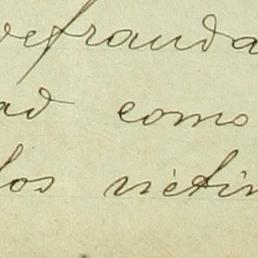 defrauda
ad como
los víctim